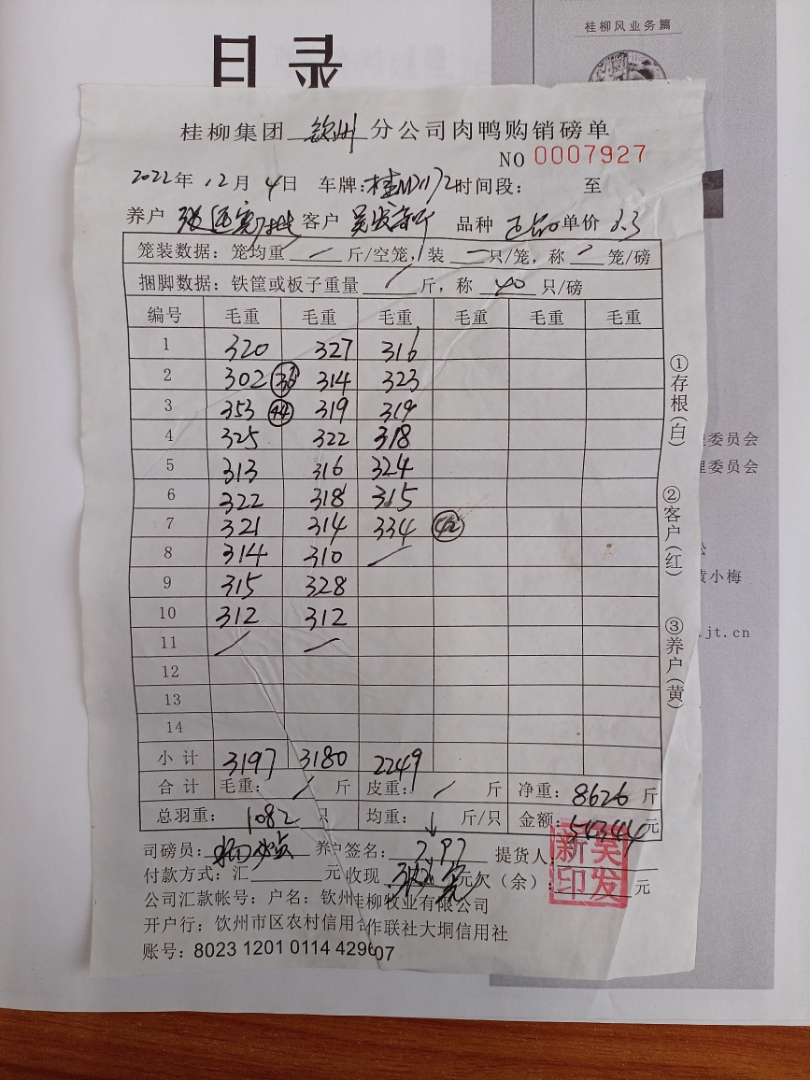 桂柳风业务篇
目录
桂柳集团 钦州 分公司肉鸭购销磅单
NO 0007927
2022年 12月 4日 车牌: 时间段: 至
养户 客户 品种 正品 单价 6.3
笼装数据: 笼均重 / 斤/空笼, 装 / 只/笼, 称 / 笼/磅
捆脚数据: 铁筐或板子重量 / 斤, 称 40 只/磅
编号 毛重 毛重 毛重 毛重 毛重 毛重
1 320 327 316
2 302 314 323
3 353 44 319 319
4 325 322 318
5 313 316 324
6 322 318 315
7 321 314 334 42
8 314 310 /
9 315 328
10 312 312
11 / /
12
13
14
小计 3197 3180 2249
合计 毛重: / 斤 皮重: / 斤 净重: 8626 斤
总羽重: 1082 只 均重: ↓ 斤/只 金额: 54344 元
司磅员: 养户签名: 7.97 提货人:
付款方式: 汇 元 收现 元 欠(余): 元
吴发新印
公司汇款帐号: 户名: 钦州桂柳牧业有限公司
开户行: 钦州市区农村信用合作联社大垌信用社
账号: 8023 1201 0114 429607
①存根(白)
②客户(红)
③养户(黄)
委员会
理委员会
黄小梅
.jt.cn